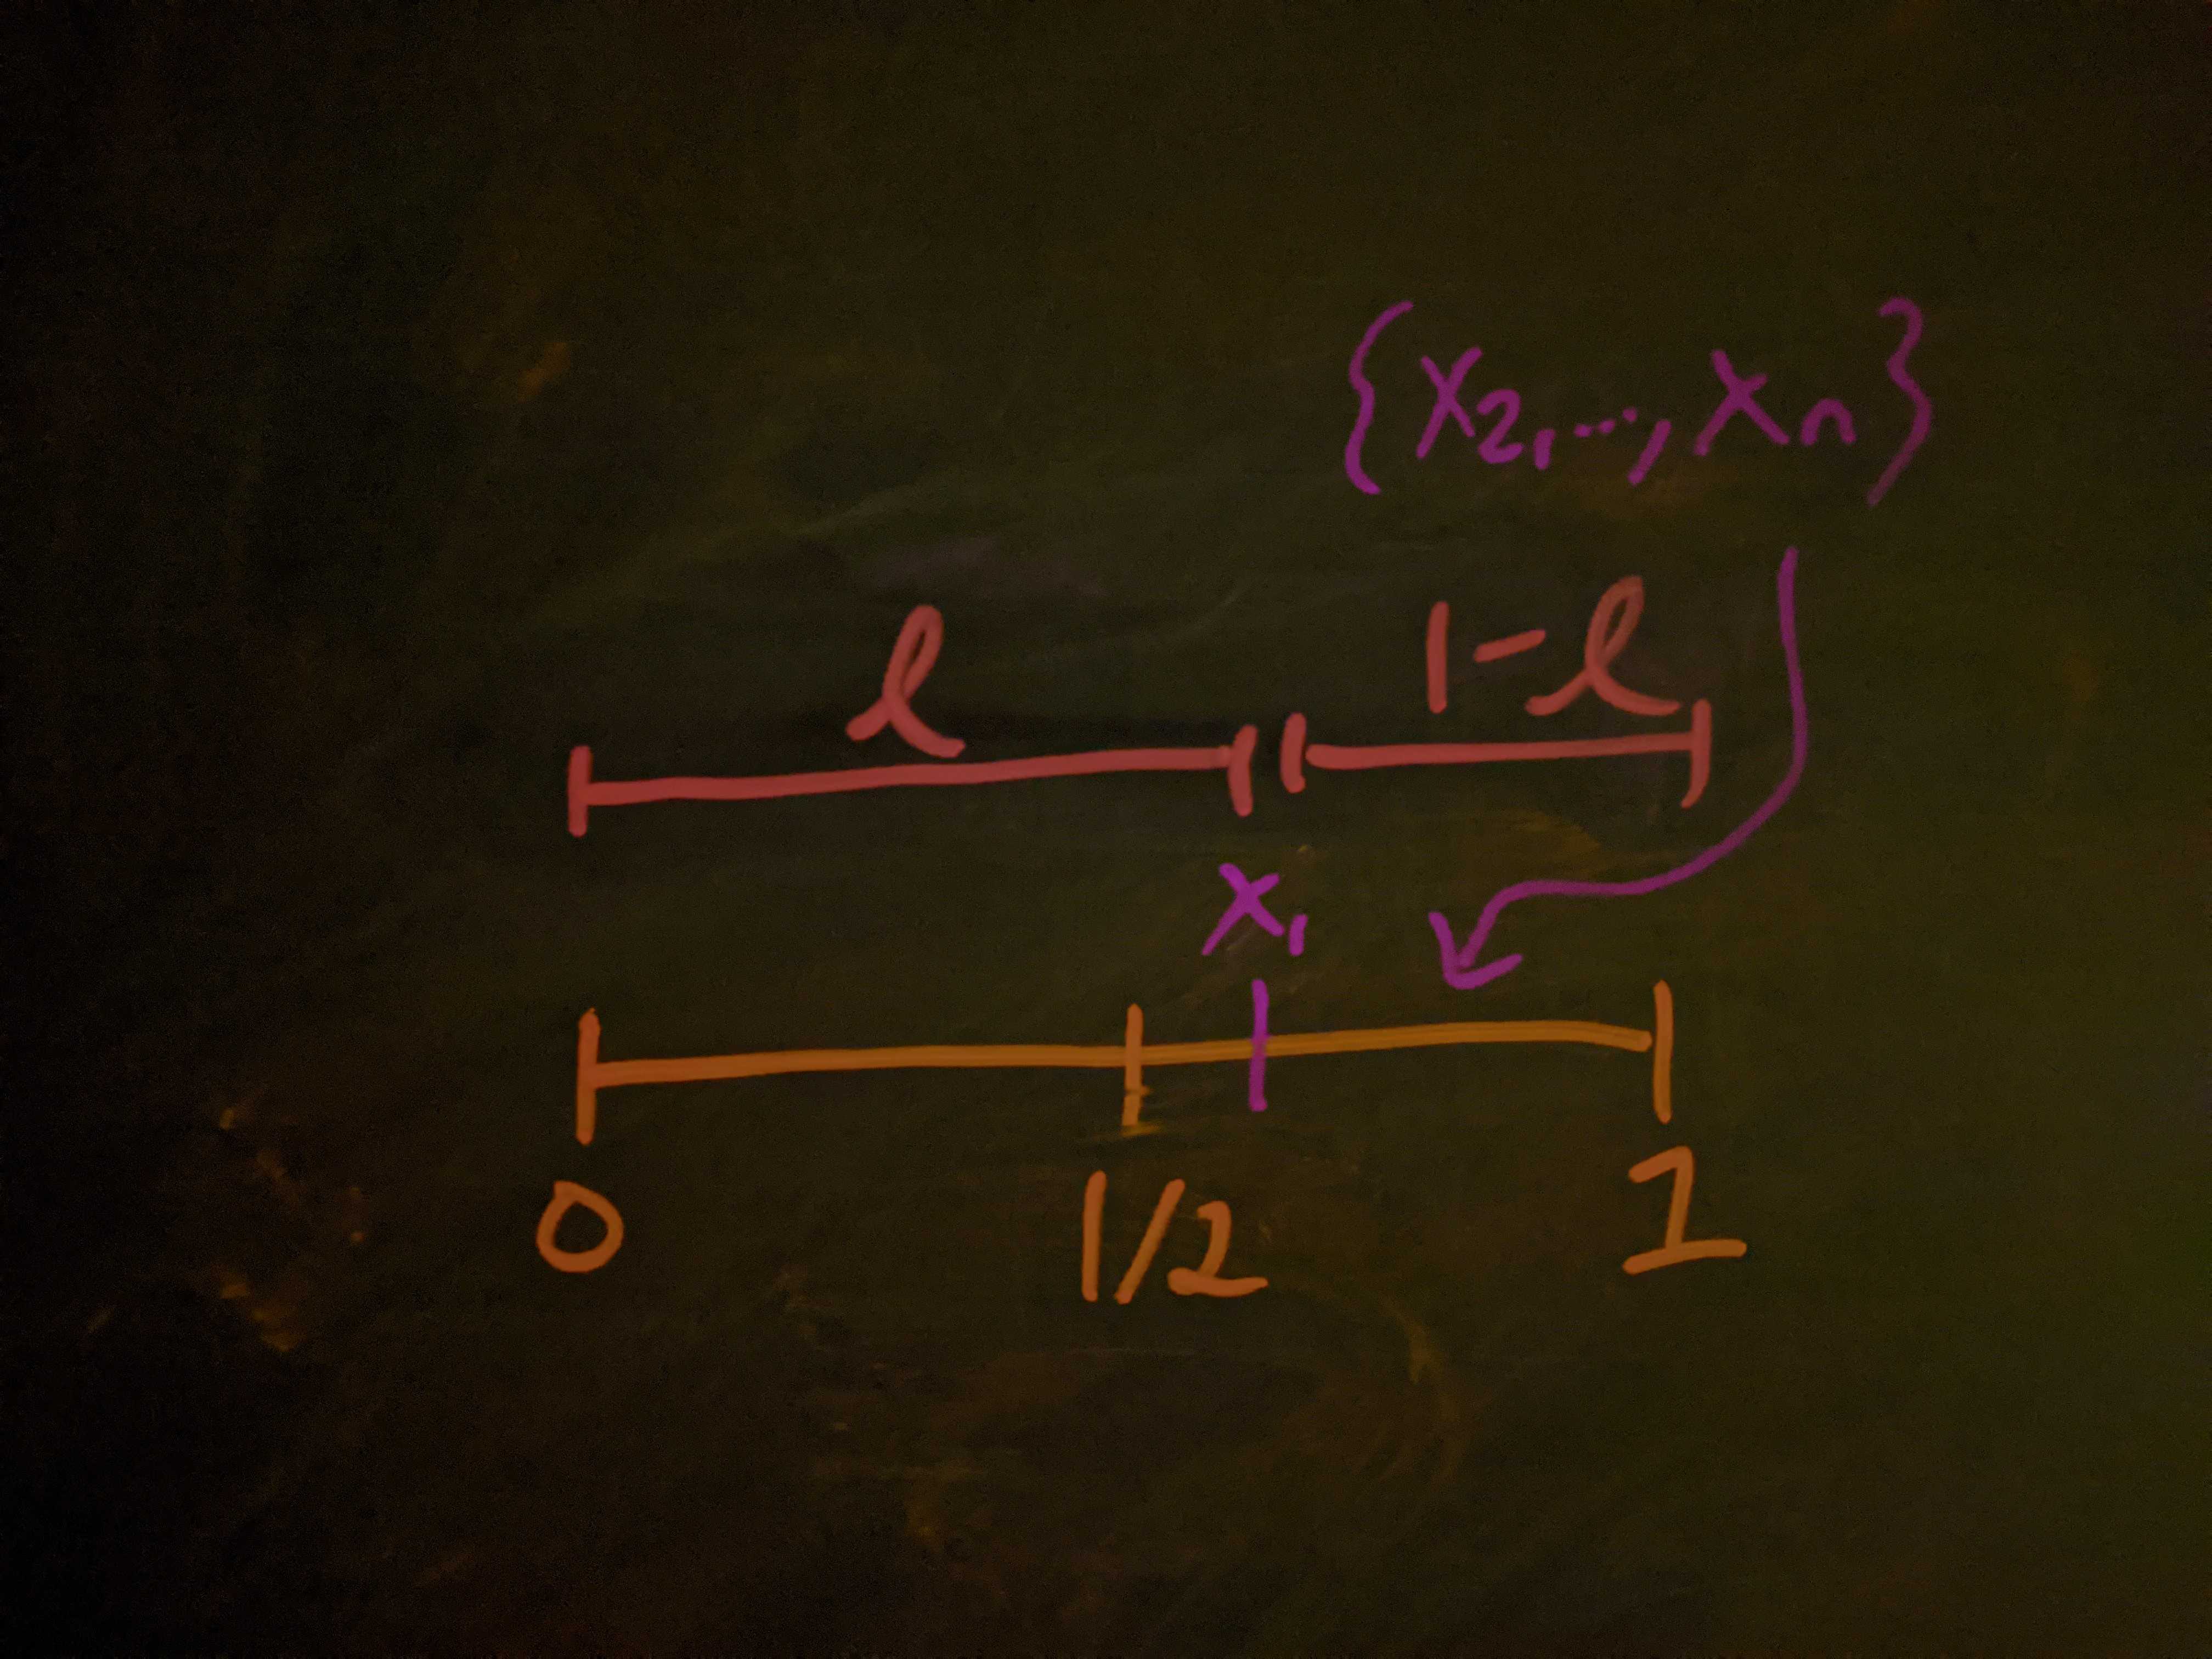 {x₂,...,xₙ}
ℓ 1-ℓ
x₁
0 1/2 1